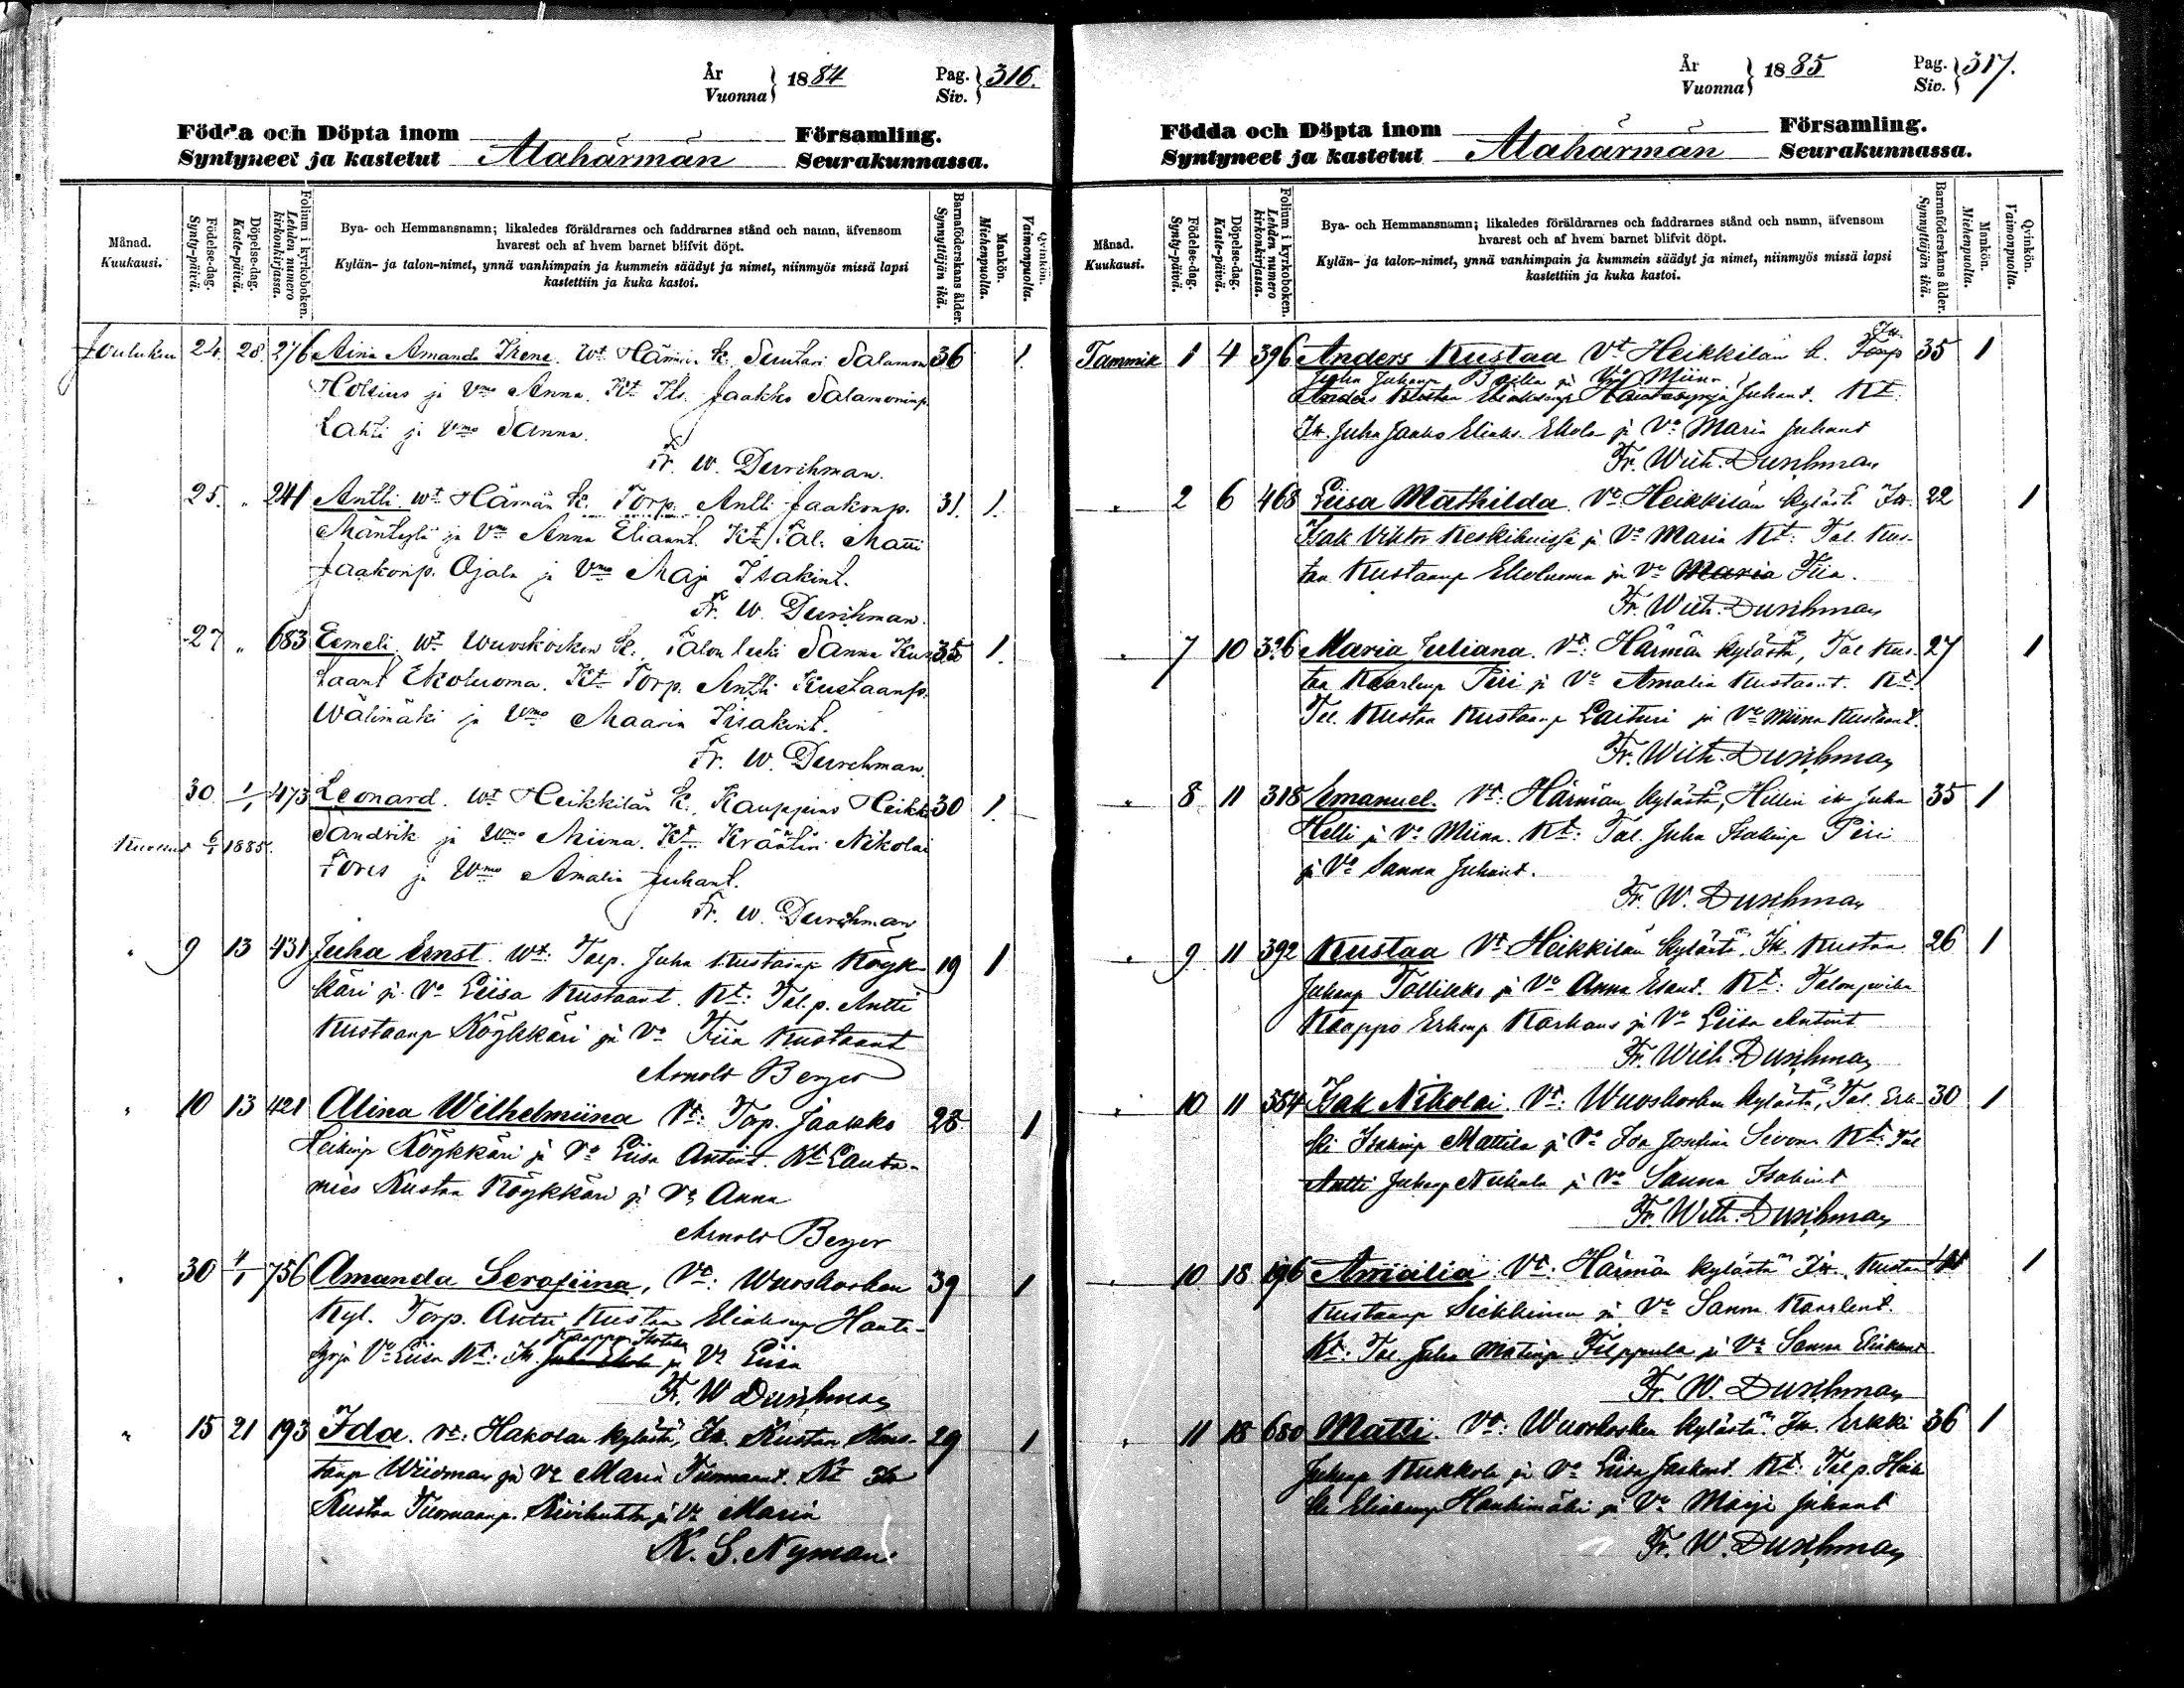 År
Vuonna } 1884
Pag.
Siv. } 316.
Födda och Döpta inom
Syntyneet ja kastetut Alahärmän Församling.
Seurakunnassa.
Månad.
Kuukausi.
Födelse-dag.
Synty-päivä.
Döpelse-dag.
Kaste-päivä.
Folium i kyrkoboken.
Lehden numero kirkonkirjassa.
Bya- och Hemmansnamn; likaledes föräldrarnes och faddrarnes stånd och namn, äfvensom
hvarest och af hvem barnet blifvit döpt.
Kylän- ja talon-nimet, ynnä vanhimpain ja kummein säädyt ja nimet, niinmyös missä lapsi
kastettiin ja kuka kastoi.
Barnaföderskans ålder.
Synnyttäjän ikä.
Mankön.
Miehenpuolta.
Qvinkön.
Vaimonpuolta.
Jouluku 24. 28. 276 Aina Amanda Irene. Wt Härmän k. Suutari Salamon 36 1.
Holsius ja Vmo Anna. Kt Its. Jaakko Salamoninp.
Lahti ja Vmo Sanna.
Fr. W. Durchman.
25. " 241 Antti. Wt Härmän k. Torp. Antti Jaakonp. 31. 1.
Mäntylä ja Vmo Anna Eliant. Kt Tal. Matti
Jaakonp. Ojala ja Vmo Maja Isakint.
Fr. W. Durchman.
27 " 683 Eemeli. Wt Wuoskosken k. Talon leski Sanna Kus- 35 1.
taant Ekoluoma. Kt Torp. Antti Kustaanp.
Wälimäki ja Vmo Maaria Iisakint.
Fr. W. Durchman.
30. 1/1 473 Leonard. Wt Heikkilän k. Kauppias Heikki 30 1.
Sandvik ja Wmo Miina. Kt Kräätäri Nikolai
1885.
Fors ja Wmo Amalia Juhant.
Fr. W. Durchman
" 9 13 431 Juha Ernst. Wt: Talp. Juha Kustaanp Köyk- 19 1
käri ja Vo Liisa Kustaant. Kt: Tal.p. Antti
Kustaanp Köykkäri ja Vo Fiia Kustaant
Arnold Berger
" 10 13 421 Alina Wilhelmiina Vt: Torp. Jaakko 28 1
Heikinp Köykkäri ja Vo Liisa Antint. Kt Lauta-
mies Kustaa Köykkäri ja Vo Anna
Arnold Berger
" 30 4/1 756 Amanda Serafiina, Vt: Wuoskosken 39 1
Kyl. Torp. Antti Kustaa Eliaksenp Hauta-
syrjä Vo Liisa Kt: It. Juha Ekola ja Vo Liisa
Fr. W Durchman
" 15 21 193 Ida. Vt: Hakolan kylästä, It. Kustaa Kus- 29 1
taanp Wiidman ja Vo Maria Tuomaant. Kt It
Kustaa Tuomaanp. Kivihuhta ja Vo Maria
K. S. Nyman.
År
Vuonna } 1885
Pag.
Siv. } 317.
Födda och Döpta inom
Syntyneet ja kastetut Alahärmän Församling.
Seurakunnassa.
Månad.
Kuukausi.
Födelse-dag.
Synty-päivä.
Döpelse-dag.
Kaste-päivä.
Folium i kyrkoboken.
Lehden numero kirkonkirjassa.
Bya- och Hemmansnamn; likaledes föräldrarnes och faddrarnes stånd och namn, äfvensom
hvarest och af hvem barnet blifvit döpt.
Kylän- ja talon-nimet, ynnä vanhimpain ja kummein säädyt ja nimet, niinmyös missä lapsi
kastettiin ja kuka kastoi.
Barnaföderskans ålder.
Synnyttäjän ikä.
Mankön.
Miehenpuolta.
Qvinkön.
Vaimonpuolta.
Itt.
Tammik 1 4 396 Anders Kustaa Vt Heikkilän k. Torp 35 1
Juha Juhanp ja Vo Miina
Anders Kustaa Eliaksenp Hautasyrjä Juhant. Kt.
It. Juha Jaako Eliaks. Ekola ja Vo Maria Juhant
Fr. Wilh. Durchman
" 2 6 468 Liisa Mathilda Vt: Heikkilän kylästä It. 22 1
Isak Viktor ja Vo Maria Kt: Tal. Kus-
taa Kustaanp Ekoluoma ja Vo Maria Fiia.
Fr. Wilh. Durchman
" 7 10 326 Maria Juliana. Vt: Härmän kylästä, Tal Kus- 27 1
taa Kaarlenp Piri ja Vo Amalia Kustaant. Kt:
Tal. Kustaa Kustaanp Laituri ja Vo Miina Kustaant.
Fr. Wilh. Durchman
" 8 11 318 Emanuel. Vt: Härmän kylästä, Juha 35 1
Helli ja Vo Miina. Kt: Tal. Juha Isakinp Piri
ja Vo Sanna Juhant.
Fr. W. Durchman
" 9 11 392 Kustaa Vt Heikkilän kylästä. It. Kustaa 26 1
Juhanp Tollikko ja Vo Anna Esant. Kt: Talonpoika
Kaappo Erkinp Karhaus ja Vo Liisa Antint
Fr. Wilh. Durchman
" 10 11 554 Isak Nikolai. Vt: Wuoskosken kylästä, Tal. Erk- 30 1
ki Isakinp Mattila ja Vo Ida Josefina Sivona Kt: Tal
Antti Juhanp Nukala ja Vo Sanna Isakint
Fr. Wilh. Durchman
" 10 18 196 Amalia Vt: Härmän kylästä It. Kustaa 1
Kustaanp ja Vo Sanna Kaarlent.
Kt: Tal. Juha Matinp Filppula ja Vo Sanna Eliaksent
Fr. W. Durchman
" 11 18 680 Matti. Vt: Wuoskosken kylästä. It. Erkki 36 1
Juhanp Kukkola ja Vo Liisa Jaakont. Kt: Tal.p. Heik
ki Eliaksenp Haukimäki ja Vo Maija Juhant
Fr. W. Durchman